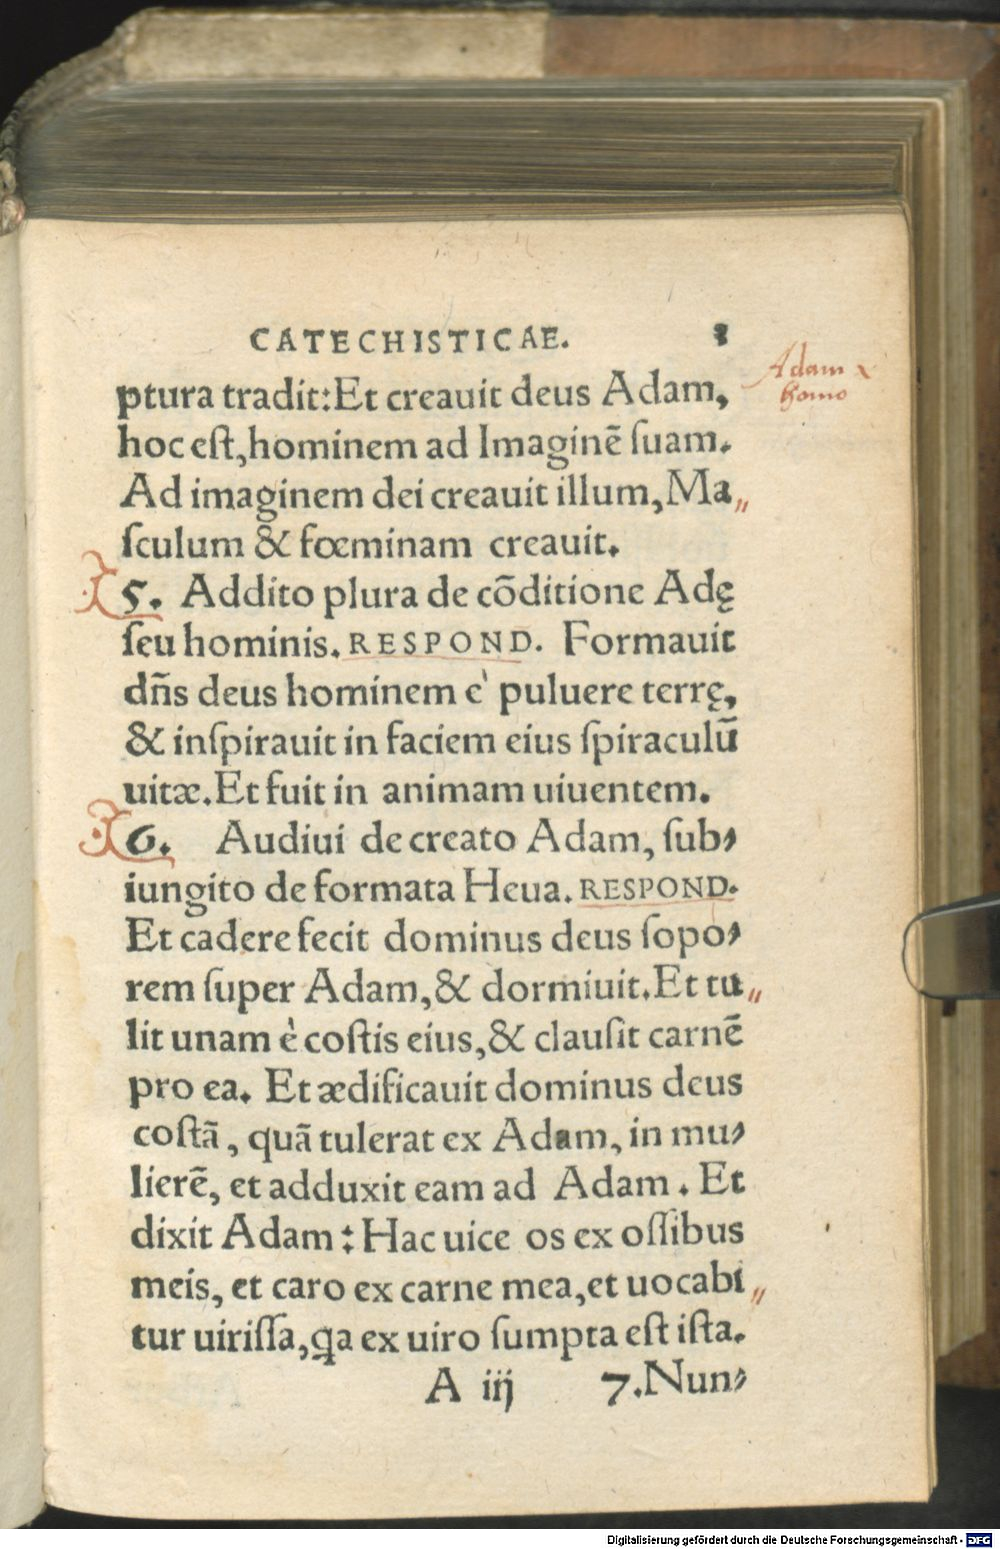 CATECHISTICAE.
ptura tradit:Et creauit deus Adam,
Adam
homo
hoc est,hominem ad Imaginē ſuam.
Ad imaginem dei creauit illum,Ma〃
ſculum & fœminam creauit.
5. Addito plura de cōditione Adę
ſeu hominis. RESPOND. Formauit
dn̄s deus hominem e' puluere terrę,
& inſpirauit in faciem eius ſpiraculū
uitæ.Et fuit in animam uiuentem.
6. Audiui de creato Adam, ſub⸗
iungito de formata Heua. RESPOND.
Et cadere fecit dominus deus ſopo⸗
rem ſuper Adam,& dormiuit.Et tu〃
lit unam è coſtis eius,& clauſit carnē
pro ea. Et ædificauit dominus deus
coſtā, quā tulerat ex Adam, in mu⸗
lierē, et adduxit eam ad Adam. Et
dixit Adam: Hac uice os ex oſſibus
meis, et caro ex carne mea,et uocabi〃
tur uiriſſa,ꝗa ex uiro ſumpta eſt iſta.
A iij 7.Nun⸗
Digitalisierung gefördert durch die Deutsche Forschungsgemeinschaft - DFG